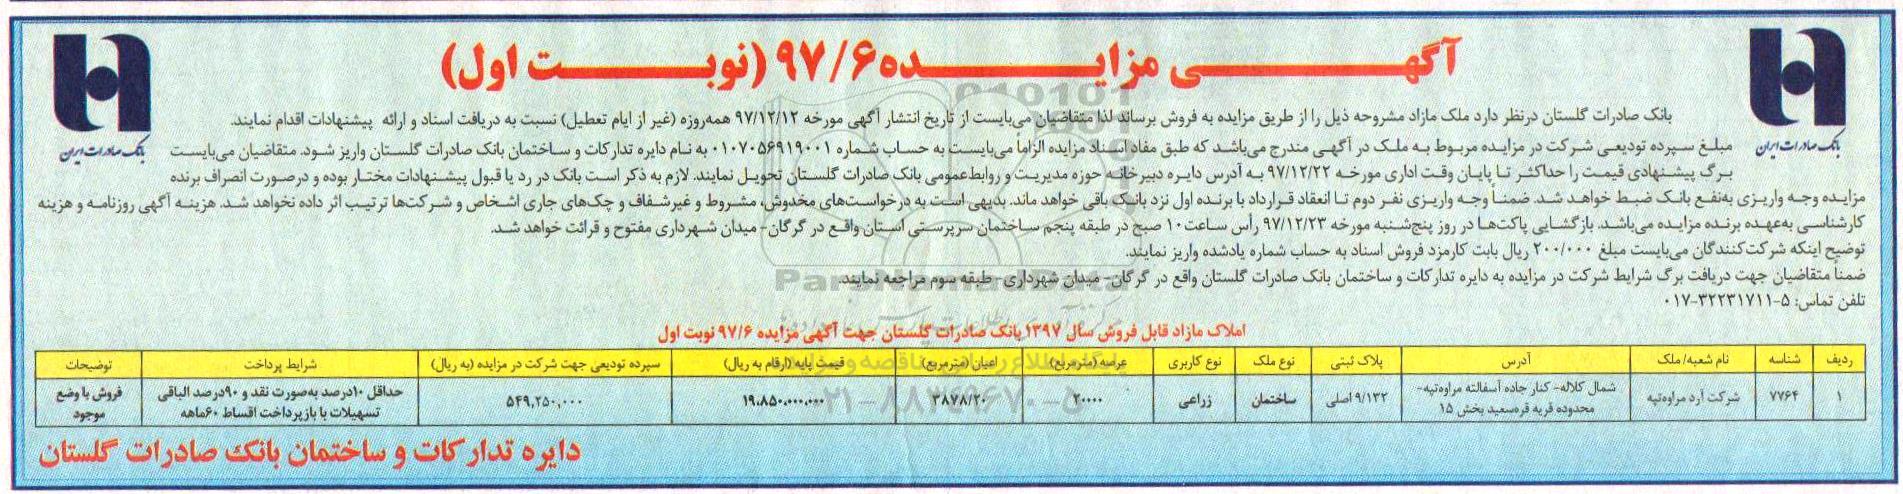 آگهی مزایده ۹۷/۶ (نوبت اول)
بانک صادرات ایران
بانک صادرات ایران
بانک صادرات گلستان درنظر دارد ملک مازاد مشروحه ذیل را از طریق مزایده به فروش برساند لذا متقاضیان می‌بایست از تاریخ انتشار آگهی مورخه ۹۷/۱۲/۱۲ همه‌روزه (غیر از ایام تعطیل) نسبت به دریافت اسناد و ارائه پیشنهادات اقدام نمایند.
مبلغ سپرده تودیعی شرکت در مزایده مربوط به ملک در آگهی مندرج می‌باشد که طبق مفاد اسناد مزایده الزاماً می‌بایست به حساب شماره ۰۱۰۷۰۵۶۹۱۹۰۰۱ به نام دایره تدارکات و ساختمان بانک صادرات گلستان واریز شود. متقاضیان می‌بایست
برگ پیشنهادی قیمت را حداکثر تا پایان وقت اداری مورخه ۹۷/۱۲/۲۲ به آدرس دایره دبیرخانه حوزه مدیریت و روابط‌عمومی بانک صادرات گلستان تحویل نمایند. لازم به ذکر است بانک در رد یا قبول پیشنهادات مختار بوده و درصورت انصراف برنده
مزایده وجه واریزی به‌نفع بانک ضبط خواهد شد. ضمناً وجه واریزی نفر دوم تا انعقاد قرارداد با برنده اول نزد بانک باقی خواهد ماند. بدیهی است به درخواست‌های مخدوش، مشروط و غیرشفاف و چک‌های جاری اشخاص و شرکت‌ها ترتیب اثر داده نخواهد شد. هزینه آگهی روزنامه و هزینه
کارشناسی به‌عهده برنده مزایده می‌باشد. بازگشایی پاکت‌ها در روز پنج‌شنبه مورخه ۹۷/۱۲/۲۳ رأس ساعت۱۰ صبح در طبقه پنجم ساختمان سرپرستی استان واقع در گرگان- میدان شهرداری مفتوح و قرائت خواهد شد.
توضیح اینکه شرکت‌کنندگان می‌بایست مبلغ ۲۰۰/۰۰۰ ریال بابت کارمزد فروش اسناد به حساب شماره یادشده واریز نمایند.
ضمناً متقاضیان جهت دریافت برگ شرایط شرکت در مزایده به دایره تدارکات و ساختمان بانک صادرات گلستان واقع در گرگان- میدان شهرداری - طبقه سوم مراجعه نمایند.
تلفن تماس: ۵-۳۲۲۳۱۷۱۱-۰۱۷
املاک مازاد قابل فروش سال ۱۳۹۷ بانک صادرات گلستان جهت آگهی مزایده ۹۷/۶ نوبت اول
ردیف شناسه نام شعبه/ ملک آدرس پلاک ثبتی نوع ملک نوع کاربری عرصه (مترمربع) اعیان (مترمربع) قیمت پایه (ارقام به ریال) سپرده تودیعی جهت شرکت در مزایده (به ریال) شرایط پرداخت توضیحات
۱ ۷۷۶۴ شرکت آرد مراوه‌تپه شمال کلاله- کنار جاده آسفالته مراوه‌تپه- محدوده قریه قره‌سعید بخش ۱۵ ۹/۱۳۲ اصلی ساختمان زراعی ۲۰۰۰۰ ۳۸۷۸/۲۰ ۱۹،۸۵۰،۰۰۰،۰۰۰ ۵۴۹،۲۵۰،۰۰۰ حداقل ۱۰درصد به‌صورت نقد و ۹۰درصد الباقی تسهیلات با بازپرداخت اقساط ۶۰ماهه فروش با وضع موجود
دایره تدارکات و ساختمان بانک صادرات گلستان
ParsNamadData
۰۲۱-۸۸۳۴۹۶۷۰-۵